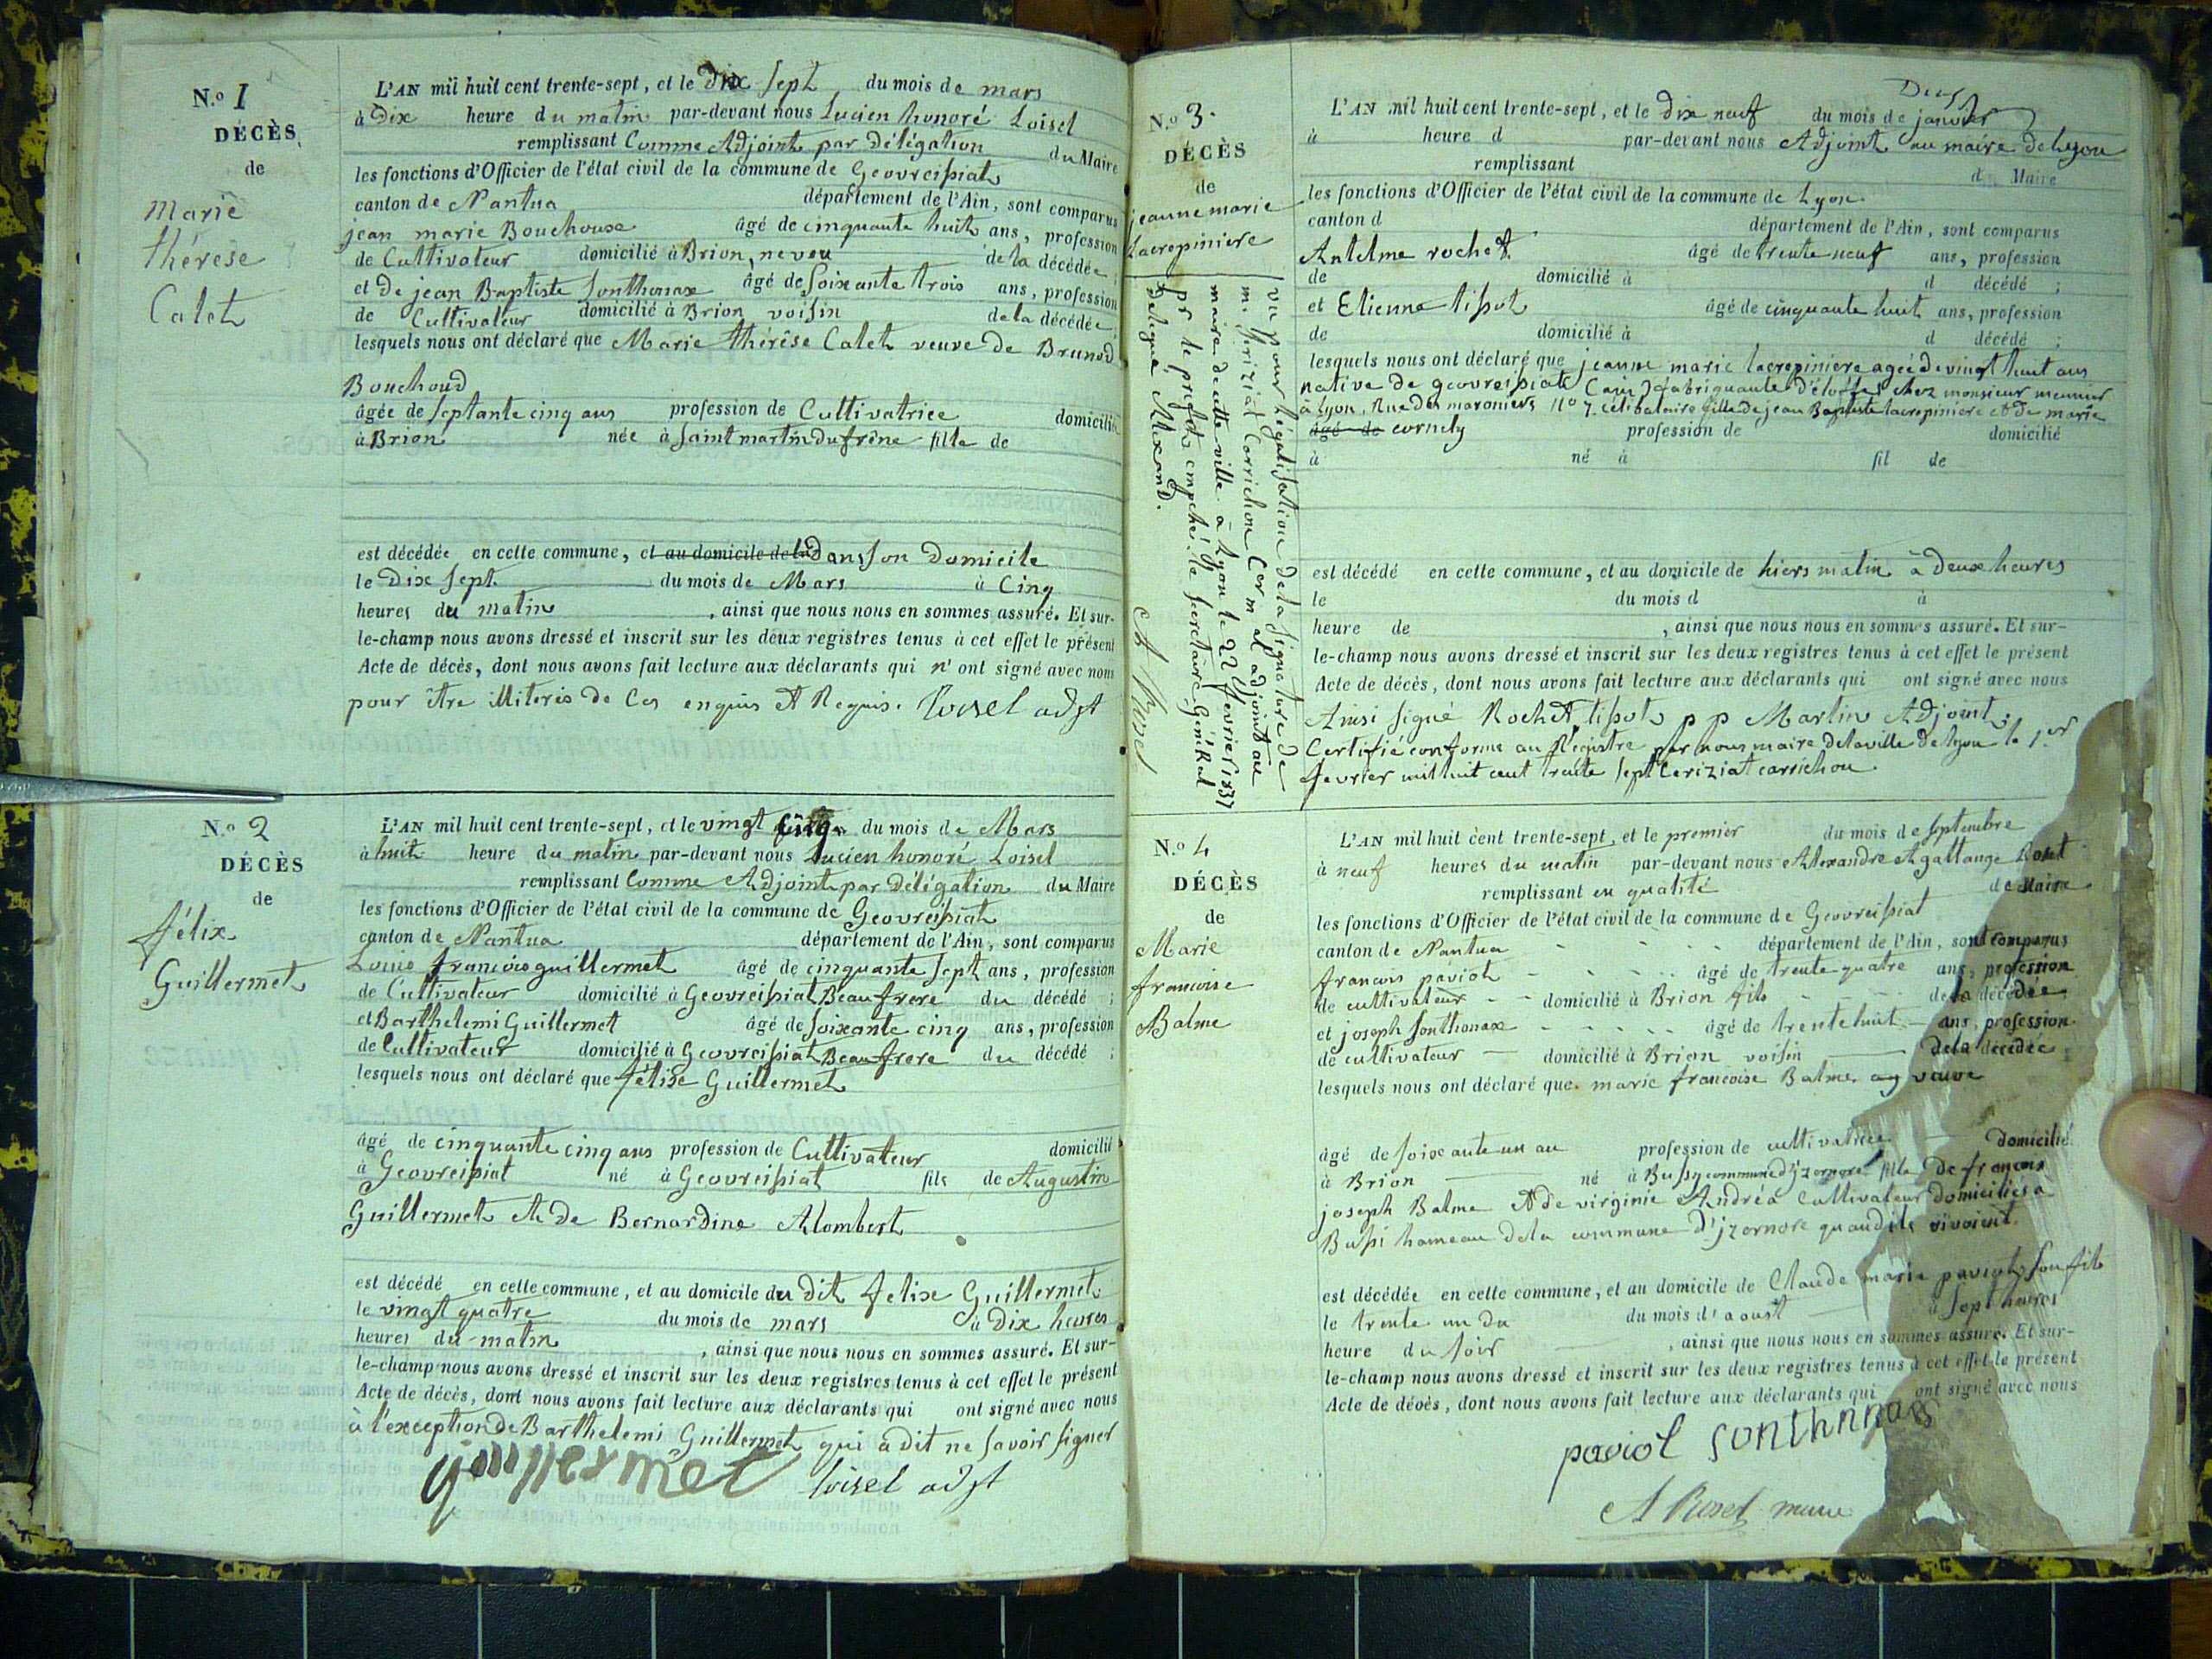 N.º 1
DÉCÈS
de
Marie
thérèse
Calet
L'AN mil huit cent trente-sept, et le Dix sept du mois de mars
à Dix heure du matin par-devant nous Lucien honoré Loisel
remplissant Comme Adjoint par délégation du Maire
les fonctions d'Officier de l'état civil de la commune de Geovreissiat
canton de Nantua département de l'Ain, sont comparus
jean marie Bouchoux âgé de cinquante huit ans, profession
de Cultivateur domicilié à Brion, neveu de la décédée ;
et De jean Baptiste Sonthonax âgé de Soixante trois ans, profession
de Cultivateur domicilié à Brion voisin de la décédée ;
lesquels nous ont déclaré que Marie thérèse Calet veuve de Brunod
Bouchoud
âgée de Septante cinq ans profession de Cultivatrice domicilié
à Brion née à Saint martin du frêne fille de
est décédée en cette commune, et au domicile de la Dans Son Domicile
le Dix sept du mois de Mars à Cinq
heures du matin , ainsi que nous nous en sommes assuré. Et sur-
le-champ nous avons dressé et inscrit sur les deux registres tenus à cet effet le présent
Acte de décès, dont nous avons fait lecture aux déclarants qui n'ont signé avec nous
pour être illiterés de Ces enquis Et Requis. Loisel adjt
N.º 2
DÉCÈS
de
félix
Guillermet
L'AN mil huit cent trente-sept, et le vingt cinq du mois de Mars
à huit heure du matin par-devant nous Lucien honoré Loisel
remplissant Comme Adjoint par délégation du Maire
les fonctions d'Officier de l'état civil de la commune de Geovreissiat
canton de Nantua département de l'Ain, sont comparus
Louis françois guillermet âgé de cinquante sept ans, profession
de Cultivateur domicilié à Geovreissiat Beaufrere du décédé ;
et Barthelemi Guillermet âgé de Soixante cinq ans, profession
de Cultivateur domicilié à Geovreissiat Beaufrere du décédé ;
lesquels nous ont déclaré que félix Guillermet
âgé de cinquante cinq ans profession de Cultivateur domicilié
à Geovreissiat né à Geovreissiat fils de Augustin
Guillermet Et de Bernardine Alombert
est décédé en cette commune, et au domicile du Dit felix Guillermet
le vingt quatre du mois de mars à Dix heures
heures du matin , ainsi que nous nous en sommes assuré. Et sur-
le-champ nous avons dressé et inscrit sur les deux registres tenus à cet effet le présent
Acte de décès, dont nous avons fait lecture aux déclarants qui ont signé avec nous
à l'exception de Barthelemi Guillermet qui a dit ne savoir signer
guillermet Loisel adjt
N.º 3.
DÉCÈS
de
jeanne marie
Lacrepiniere
vu pour légalisation de la signature de
maire de cette ville à Lyon le 22 fevrier 1837
pr le prefet empeché, le secretaire Général
délégué Alexand.
L'AN mil huit cent trente-sept, et le dix neuf du mois de janvier
à heure d par-devant nous Adjoint au maire de Lyon
remplissant d Maire
les fonctions d'Officier de l'état civil de la commune de Lyon
canton d département de l'Ain, sont comparus
Antelme rochet âgé de trente neuf ans, profession
de domicilié à d décédé ;
et Etienne tissot âgé de cinquante huit ans, profession
de domicilié à d décédé ;
lesquels nous ont déclaré que jeanne marie lacrepiniere agée de vingt huit ans
native de geovreissiat (ain) fabriquante d'étoffes chez monsieur meunier
à Lyon, Rue des maroniers nº 7 célibataire fille de jean Baptiste lacrepiniere et de marie
âgé de cornely profession de domicilié
à né à fil de
est décédé en cette commune, et au domicile de hiers matin à deux heures
le du mois d à
heure de , ainsi que nous nous en sommes assuré. Et sur-
le-champ nous avons dressé et inscrit sur les deux registres tenus à cet effet le présent
Acte de décès, dont nous avons fait lecture aux déclarants qui ont signé avec nous
Ainsi signé Rochet, tissot p p Martin Adjoint.
Certifié conforme au Régistre par nous maire de la ville de lyon le 1er
fevrier mil huit cent trente sept Ceriziat carrichon
N.º 4
DÉCÈS
de
Marie
francoise
Balme
L'AN mil huit cent trente-sept, et le premier du mois de septembre
à neuf heures du matin par-devant nous Alexandre Agattange
remplissant en qualité de Maire
les fonctions d'Officier de l'état civil de la commune de Geovreissiat
canton de Nantua département de l'Ain, sont comparus
francois paviot âgé de trente quatre ans, profession
de cultivateur domicilié à Brion fils de la décédée ;
et joseph Sonthonax âgé de trente huit ans, profession
de cultivateur domicilié à Brion voisin de la décédée ;
lesquels nous ont déclaré que marie francoise Balme veuve
âgé de soixante un an profession de cultivatrice domicilié
à Brion né à Bussy commune d'izernore fille de francois
joseph Balme Et de virginie Andréa Cultivateur domiciliés a
Bussi hameau de la commune d'jzernore quand ils vivoient.
est décédée en cette commune, et au domicile de Claude marie paviot son fils
le trente un du du mois d'aoust à sept heures
heure du soir , ainsi que nous nous en sommes assuré. Et sur-
le-champ nous avons dressé et inscrit sur les deux registres tenus à cet effet le présent
Acte de décès, dont nous avons fait lecture aux déclarants qui ont signé avec nous
paviot Sonthonax